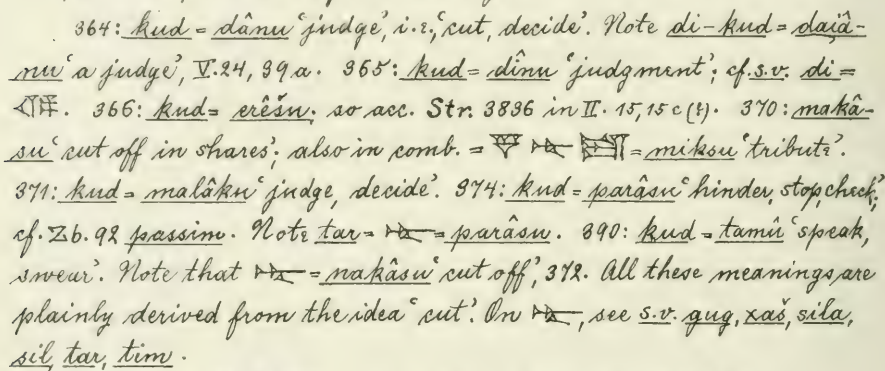 364: kud = dânu ‘judge’, i.e., ‘cut, decide’. Note di-kud = daiâ-
nu ‘a judge’, V. 24, 39a. 365: kud = dînu ‘judgment’; cf. s.v. di =
𒁲. 366: kud = erêšu; so acc. Str. 3836 in II. 15, 15c (?). 370: makâ-
su ‘cut off in shares’; also in comb. = 𒃻 𒋻 𒁕 = miksu ‘tribute’.
371: kud = malâku ‘judge, decide’. 374: kud = parâsu ‘hinder, stop, check’,
cf. Zb. 92 passim. Note tar = 𒋻 = parâsu. 390: kud = tamû ‘speak,
swear’. Note that 𒋻 = nakâsu ‘cut off’, 372. All these meanings are
plainly derived from the idea ‘cut’. On 𒋻, see s.v. gug, xaš, sila,
sil, tar, tim.